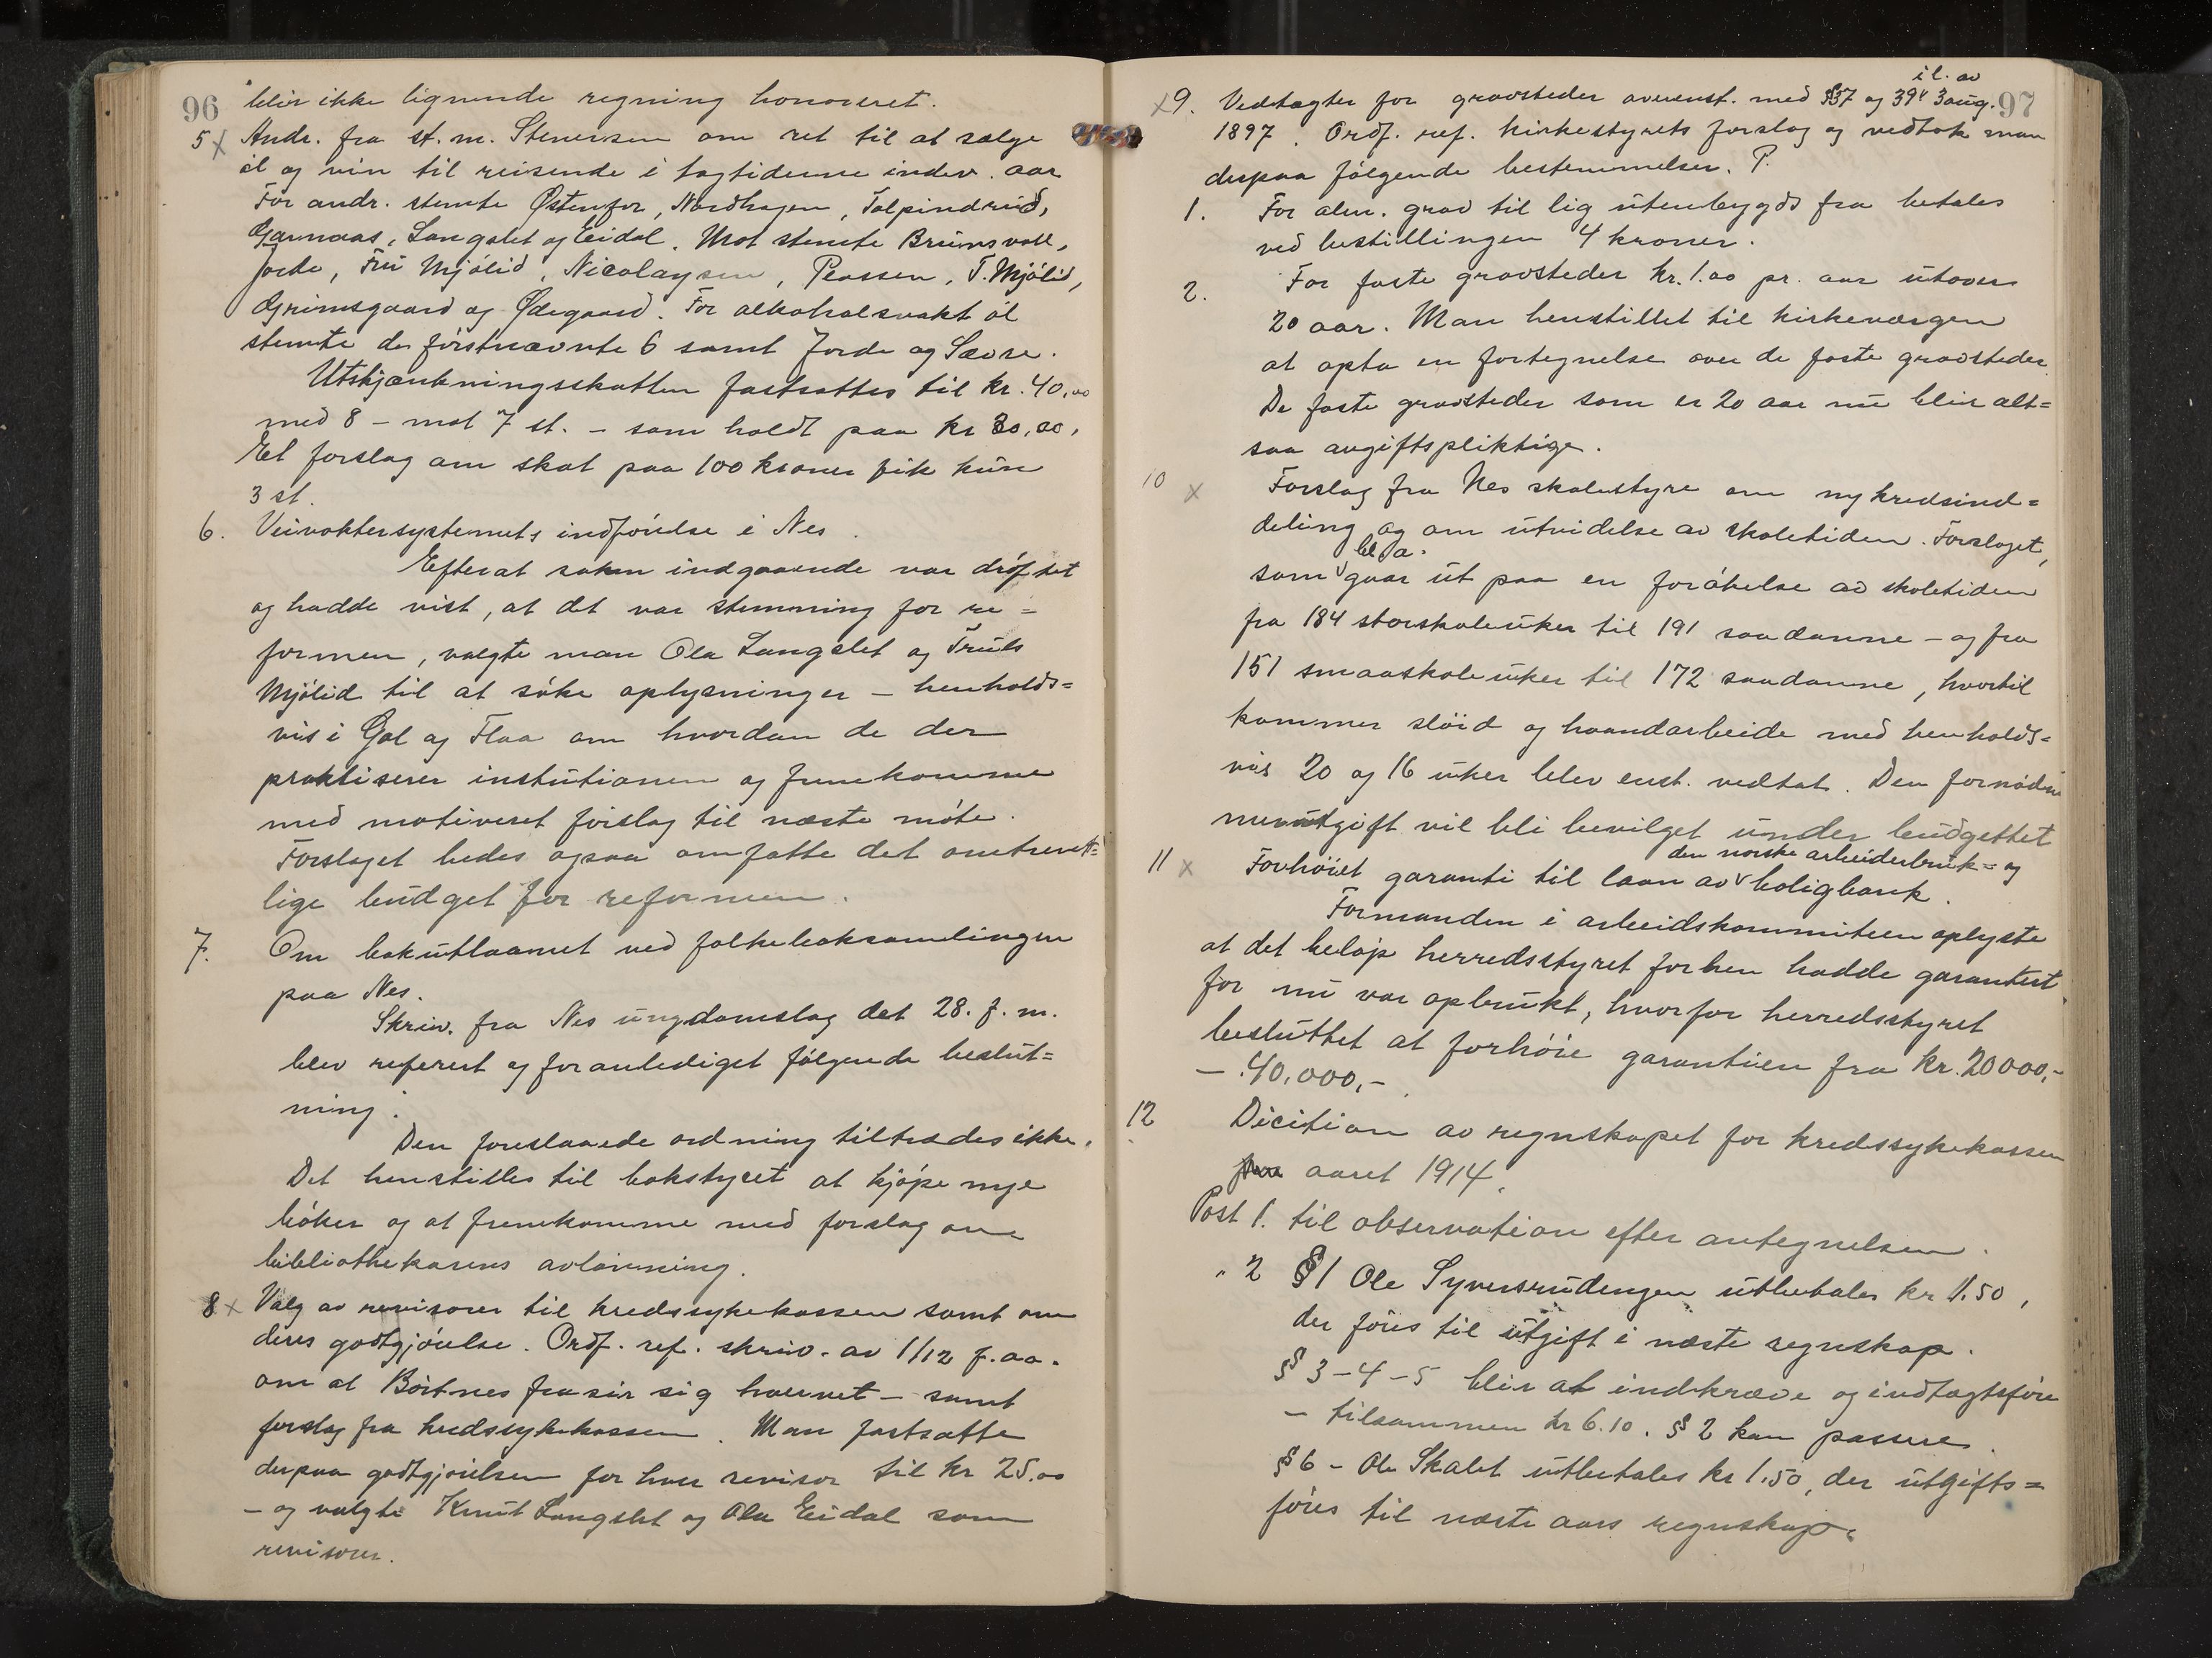 96
blir ikke lignende regning honoreret.
5 x Andr. fra st. m. Stenersen om ret til at sælge
øl og vin til reisende i togtiderne indev. aar
For andr. stemte Østenfor, Nordhagen, Tolpinrud,
Garnaas, Langslet og Eidal. Mot stemte Brunsvoll,
Jorde, Fru Mjölid, Nicolaysen, Plassen, T. Mjölid,
Grimsgaard og Ødegaard. For alkoholsvakt öl
stemte de förstnævnte 6 samt Jorde og Sævre.
Utskjænkningsskatten fastsattes til kr. 40,00
med 8 - mot 7 st. - som holdt paa kr 80,00,
Et forslag om skat paa 100 kroner fik kun
3 st.
6. Veivoktersystemets indförelse i Nes.
Efterat saken indgaaende var dröftet
og hadde vist, at det var stemning for re=
formen, valgte man Ola Langslet og Truls
Mjölid til at söke oplysninger - henholds=
vis i Gol og Flaa om hvordan de der
praktiserer institutionen og fremkomme
med motiveret forslag til næste möte.
Forslaget bedes ogsaa omfatte det omtrent=
lige budget for reformen.
7. Om bokutlaanet ved folkeboksamlingen
paa Nes.
Skriv. fra Nes ungdomslag dat 28. f. m.
blev referert og foranlediget følgende beslut=
ning:
Den foreslaaede ordning tiltrædes ikke.
Det henstilles til bokstyret at kjöpe nye
böker og at fremkomme med forslag om
bibliothekarens avlönning.
8 x Valg av revisorer til kredssykekassen samt om
deres godtgjörelse. Ordf. ref. skriv. av 1/12 f. aa.
om at Börtnes frasir sig hvervet - samt
forslag fra kredssykekassen. Man fastsatte
derpaa godtgjörelsen for hver revisor til kr 25.00
- og valgte Knut Langslet og Ola Eidal som
revisorer.
97
il. av
x 9. Vedtægter for gravsteder overenst. med §37 og 39 3 aug.
1897. Ordf. ref. kirkestyrets forslag og vedtok man
derpaa fölgende bestemmelser. P.
1. For alm. grav til lig utenbygds fra betales
ved bestillingen 4 kroner.
2. For faste gravsteder kr. 1.00 pr. aar utover
20 aar. Man henstillet til kirkevergen
at opta en fortegnelse over de faste gravsteder
De faste gravsteder som er 20 aar nu blir alt=
saa avgiftspliktige.
10 x Forslag fra Nes skolestyre om ny kredsind=
deling og om utvidelse av skoletiden. Forslaget,
bl. a.
som gaar ut paa en forökelse av skoletiden
fra 184 storskoleuker til 191 saadanne - og fra
151 smaaskoleuker til 172 saadanne, hvortil
kommer slöid og haandarbeide med henholds=
vis 20 og 16 uker blev enst. vedtat. Den fornödne
merutgift vil bli bevilget under budgettet
den norske arbeiderbruk= og
11 x Forhöiet garanti til laan av boligbank.
Formanden i arbeidskommiteen oplyste
at det belöp herredsstyret forhen hadde garantert
for nu var opbrukt, hvorfor herredsstyret
besluttet at forhöie garantien fra kr. 20000,-
- 40.000,-
12 Dicition av regnskapet for kredssykekassen
aaret 1914.
Post 1. til observation efter antegnelsen.
" 2 §1 Ole Syversrudengen utbetales kr 1.50,
der föres til utgift i næste regnskap.
§§ 3-4-5 blir at indkræve og indtægtsföre
- tilsammen kr 6.10. § 2 kan passere.
§ 6 - Ole Skalet utbetales kr 1.50, der utgifts=
föres til næste aars regnskap.